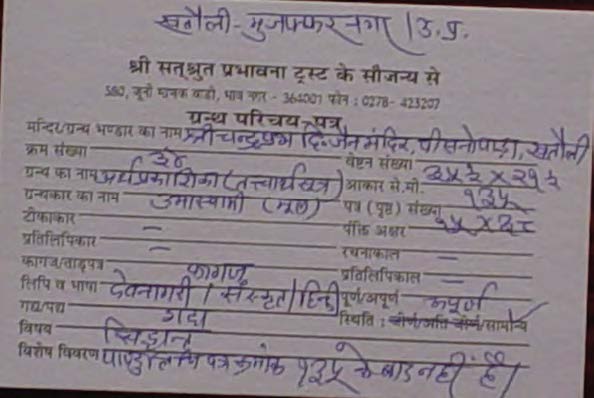 खतौली - मुजफ्फरनगर । उ.प्र.
श्री सत्श्रुत प्रभावना ट्रस्ट के सौजन्य से
580, जूनी माणक वाडी, भाव नगर - 364001 फोन : 0278- 423207
ग्रन्थ परिचय-पत्र
मन्दिर/ग्रन्थ भण्डार का नाम श्री चन्द्रप्रभ दि. जैन मंदिर, पीसनोपाड़ा, खतौली
क्रम संख्या ३४ वेष्टन संख्या
ग्रन्थ का नाम अर्थप्रकाशिका (तत्त्वार्थसूत्र) आकार से.मी.
ग्रन्थकार का नाम उमास्वामी (मूल) पत्र (पृष्ठ) संख्या १३५
टीकाकार — पंक्ति अक्षर
प्रतिलिपिकार — रचनाकाल —
कागज/ताड़पत्र कागज प्रतिलिपिकाल —
लिपि व भाषा देवनागरी / संस्कृत / हिन्दी पूर्ण/अपूर्ण अपूर्ण
गद्य/पद्य गद्य स्थिति : जीर्ण/अति जीर्ण/सामान्य
विषय सिद्धान्त
विशेष विवरण पाण्डुलिपि पत्र क्रमांक १३५ के बाद नहीं है।